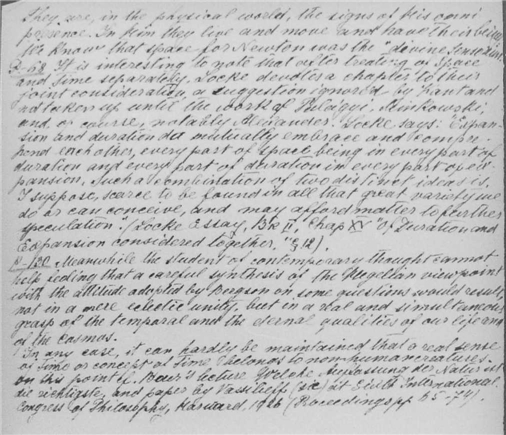 They are, in the physical world, the signs of His omni
presence. In Him they live and move and have their being.
We know that space for Newton was the "divine sensorium."
It is interesting to note that after treating of Space
and Time separately, Locke devotes a chapter to their
joint consideration, a suggestion ignored by Kant and
not taken up until the work of Palágyi, Minkowski,
and, of course, notably Alexander. Locke says: "Expan-
sion and duration do mutually embrace and compre-
hend each other, every part of space being in every part of
duration and every part of duration in every part of ex-
pansion. Such a combination of two distinct ideas is,
I suppose, scarce to be found in all that great variety we
do or can conceive, and may afford matter to further
speculation." (Locke Essay, Bk II, Chap XV "Of Duration and
Expansion considered together," § 12).
Meanwhile the student of contemporary thought cannot
help feeling that a careful synthesis of the Hegelian viewpoint
with the attitude adopted by Bergson on some questions would result,
not in a mere eclectic unity, but in a real and simultaneous
grasp of the temporal and the eternal qualities of our life and
of the Cosmos.
In any case, it can hardly be maintained that a real sense
of time or concept of Time belongs to non-human creatures.
on this point lecture Welche Auffassung der Natur ist
die richtigste, and paper by Vassilieff (sic) at Sixth International
Congress of Philosophy, Harvard, 1926 (Proceedings pp 65-74).